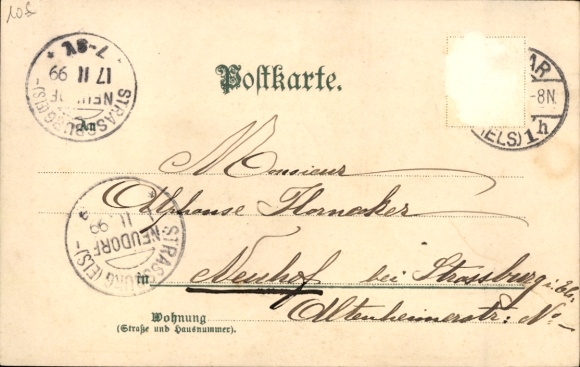 10.-
7-8V.
17 11 99
NEUDORF
STRASSBURG (ELS)
Postkarte.
AR
-8N.
(ELS) 1h
An
Monsieur
Alphonse Hornecker
11. 99
NEUDORF-
STRASSBURG (ELS)-
in
Neuhof bei Strassburg i. Els.
Altenheimerstr: No -
Wohnung
(Straße und Hausnummer).